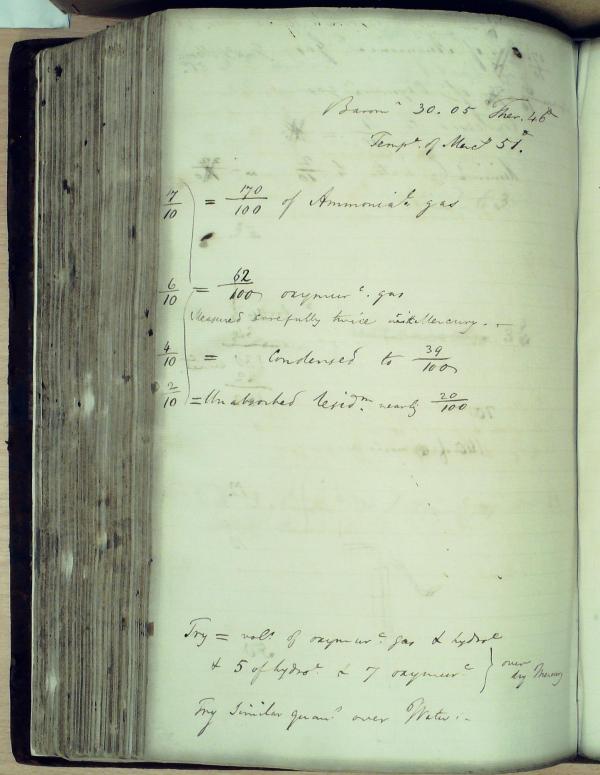 Barom^r 30.05 Ther. 46°
Temp^r. of Merc^y 51°.
17/10 = 170/100 of Ammoniac^l gas
6/10 = 62/100 oxymur^c. gas
Measured carefully twice Mercury. –
4/10 = Condensed to 39/100
2/10 = Unabsorbed resid^m. nearly 20/100
Try = vol^s. of oxymur^c. gas & hydro^e
& 5 of hydro^e. & 7 oxymur^c. } over dry Mercury
Try similar quan^s over Water. –